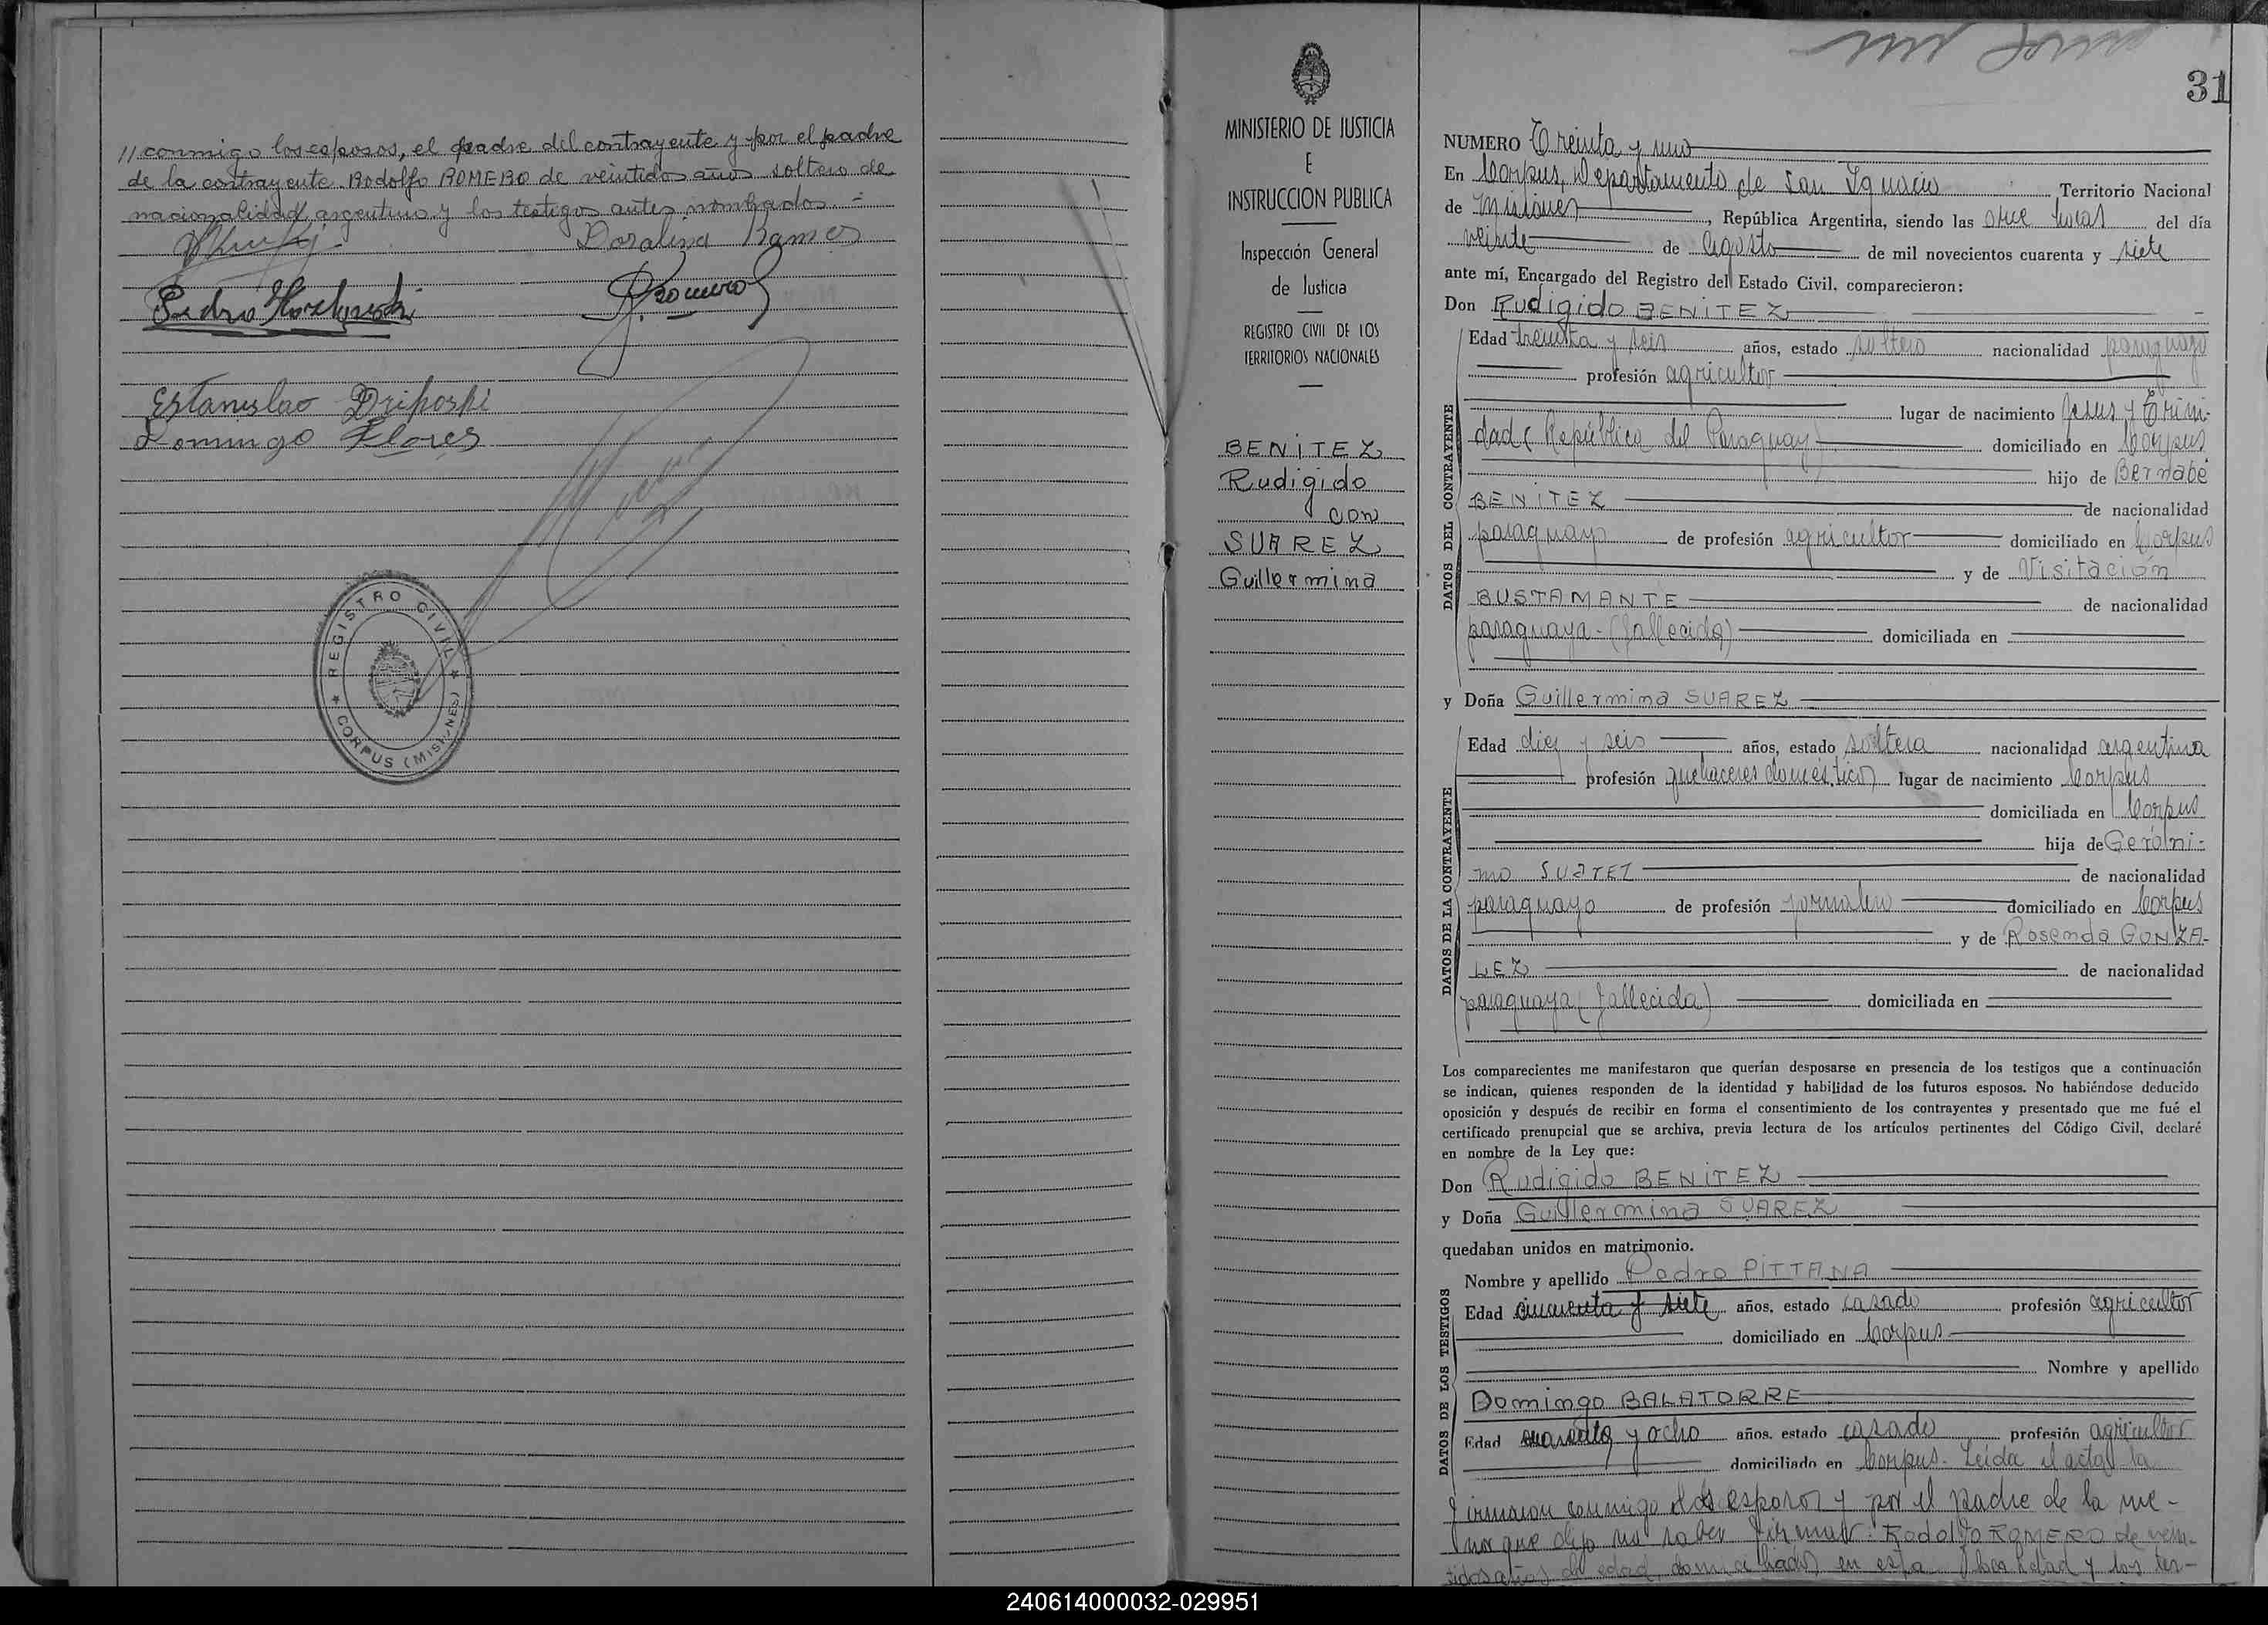 // conmigo los esposos, el padre del contrayente y por el padre
de la contrayente Rodolfo ROMERO de veintidos años soltero de
nacionalidad argentino y los testigos antes nombrados =
Doralina Ramos
Pedro
Romero
Estanislao Driposki
Domingo Flores
REGISTRO CIVIL
CORPUS (MISIONES)
MINISTERIO DE JUSTICIA
E
INSTRUCCION PUBLICA
Inspección General
de Justicia
REGISTRO CIVIL DE LOS
TERRITORIOS NACIONALES
BENITEZ
Rudigido
con
SUAREZ
Guillermina
31
NUMERO Treinta y uno
En Corpus, Departamento de San Ignacio Territorio Nacional
de Misiones, República Argentina, siendo las once horas del día
veinte de Agosto de mil novecientos cuarenta y siete
ante mí, Encargado del Registro del Estado Civil, comparecieron:
Don Rudigido BENITEZ
DATOS DEL CONTRAYENTE
Edad treinta y seis años, estado soltero nacionalidad paraguayo
profesión agricultor
lugar de nacimiento Jesus y Trini-
dad (República del Paraguay) domiciliado en Corpus
hijo de Bernabé
BENITEZ de nacionalidad
paraguayo de profesión agricultor domiciliado en Corpus
y de Visitación
BUSTAMANTE de nacionalidad
paraguaya - (fallecida) domiciliada en
y Doña Guillermina SUAREZ
DATOS DE LA CONTRAYENTE
Edad diez y seis años, estado soltera nacionalidad argentina
profesión quehaceres domésticos lugar de nacimiento Corpus
domiciliada en Corpus
hija de Geróni-
mo SUAREZ de nacionalidad
paraguayo de profesión jornalero domiciliado en Corpus
y de Rosenda GONZA-
LEZ de nacionalidad
paraguaya (fallecida) domiciliada en
Los comparecientes me manifestaron que querían desposarse en presencia de los testigos que a continuación
se indican, quienes responden de la identidad y habilidad de los futuros esposos. No habiéndose deducido
oposición y después de recibir en forma el consentimiento de los contrayentes y presentado que me fué el
certificado prenupcial que se archiva, previa lectura de los artículos pertinentes del Código Civil, declaré
en nombre de la Ley que:
Don Rudigido BENITEZ
y Doña Guillermina SUAREZ
quedaban unidos en matrimonio.
DATOS DE LOS TESTIGOS
Nombre y apellido Pedro PITTANA
Edad cincuenta y siete años, estado casado profesión agricultor
domiciliado en Corpus
Nombre y apellido
Domingo BALATORRE
Edad cuarenta y ocho años, estado casado profesión agricultor
domiciliado en Corpus. Leída el acta la
firmaron conmigo los esposos y por el padre de la me-
nor que dijo no saber firmar: Rodolfo ROMERO de vein-
tidos años de edad, domiciliado en esta localidad y los tes-
240614000032-029951